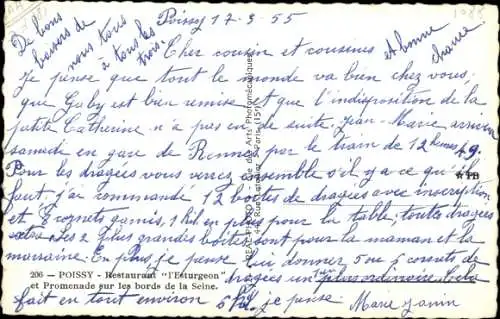 Poissy 17-3-55
De bons
baisers de
nous tous
à tous les
trois.
et bonne
chance
Cher cousin et cousines
Je pense que tout le monde va bien chez vous
que Gaby est bien remise et que l'indisposition de la
petite Catherine n'a pas eu de suite. Jean-Marie arrivera
samedi en gare de Rennes par le train de 12 heures 49.
Pour les dragées vous verrez ensemble s'il y a ce qu'il
faut, j'ai commandé 12 boîtes de dragées avec inscription
et 7 cornets garnis, 1 kil en plus pour la table, toutes dragées
extra. Les 2 plus grandes boîtes sont pour la maman et la
marraine. En plus je pense lui donner 5 ou 6 cornets de
dragées un peu plus ordinaire. Cela
fait en tout environ je pense
Marie Janin
206 — POISSY - Restaurant "l'Esturgeon"
et Promenade sur les bords de la Seine.